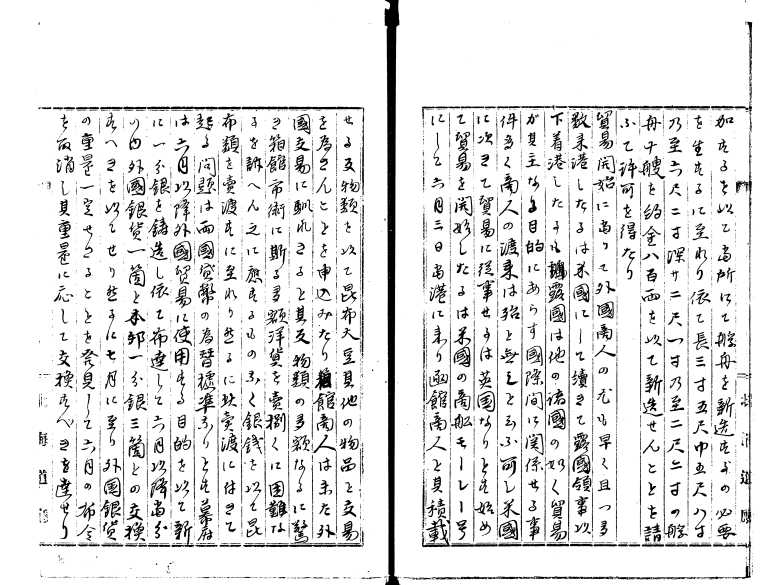 加するを以て当所にて艀舟を新造するの必要
を生するに至れり依て長三丈五尺巾五尺八寸
乃至六尺二寸深サ二尺一寸乃至二尺二寸の艀
舟十艘を約金八百両を以て新造せんことを請
ふて許可を得たり
貿易開始に当りて外国商人の尤も早く且つ多
数来港したるは米国にして続きて露国領事以
下着港したるも露国は他の諸国の如く貿易
が其主なる目的にあらす国際間に関係せる事
件多く商人の渡来は殆と無しと云ふ可し米国
に次きて貿易に従事せるは英国なりとす始め
て貿易を開始したるは米国の商船モーレー号
にして六月三日当港に来り函館商人と其積載
せる反物類を以て昆布大豆其他の物品と交易
を為さんことを申込みたり館商人は未た外
国交易に馴れさると其反物類の多額なるに驚
き箱館市街に斯る多額洋貨を売捌くに困難な
るを訴へんに応するものなく銀銭を以て昆
布類を売渡すに至れり然るに此売渡に付きて
起る問題は両国貨幣の為替標準なりとす幕府
は六月以降外国貿易に使用する目的を以て新
に一分銀を鋳造し依て布達して六月以降当分
の内外国銀貨一箇と本邦一分銀三箇との交換
すへきを以てせり然るに七月に至り外国銀貨
の重量一定せさることを発見して六月の布令
を取消し其重量に応して交換すへきを達せり
北海道